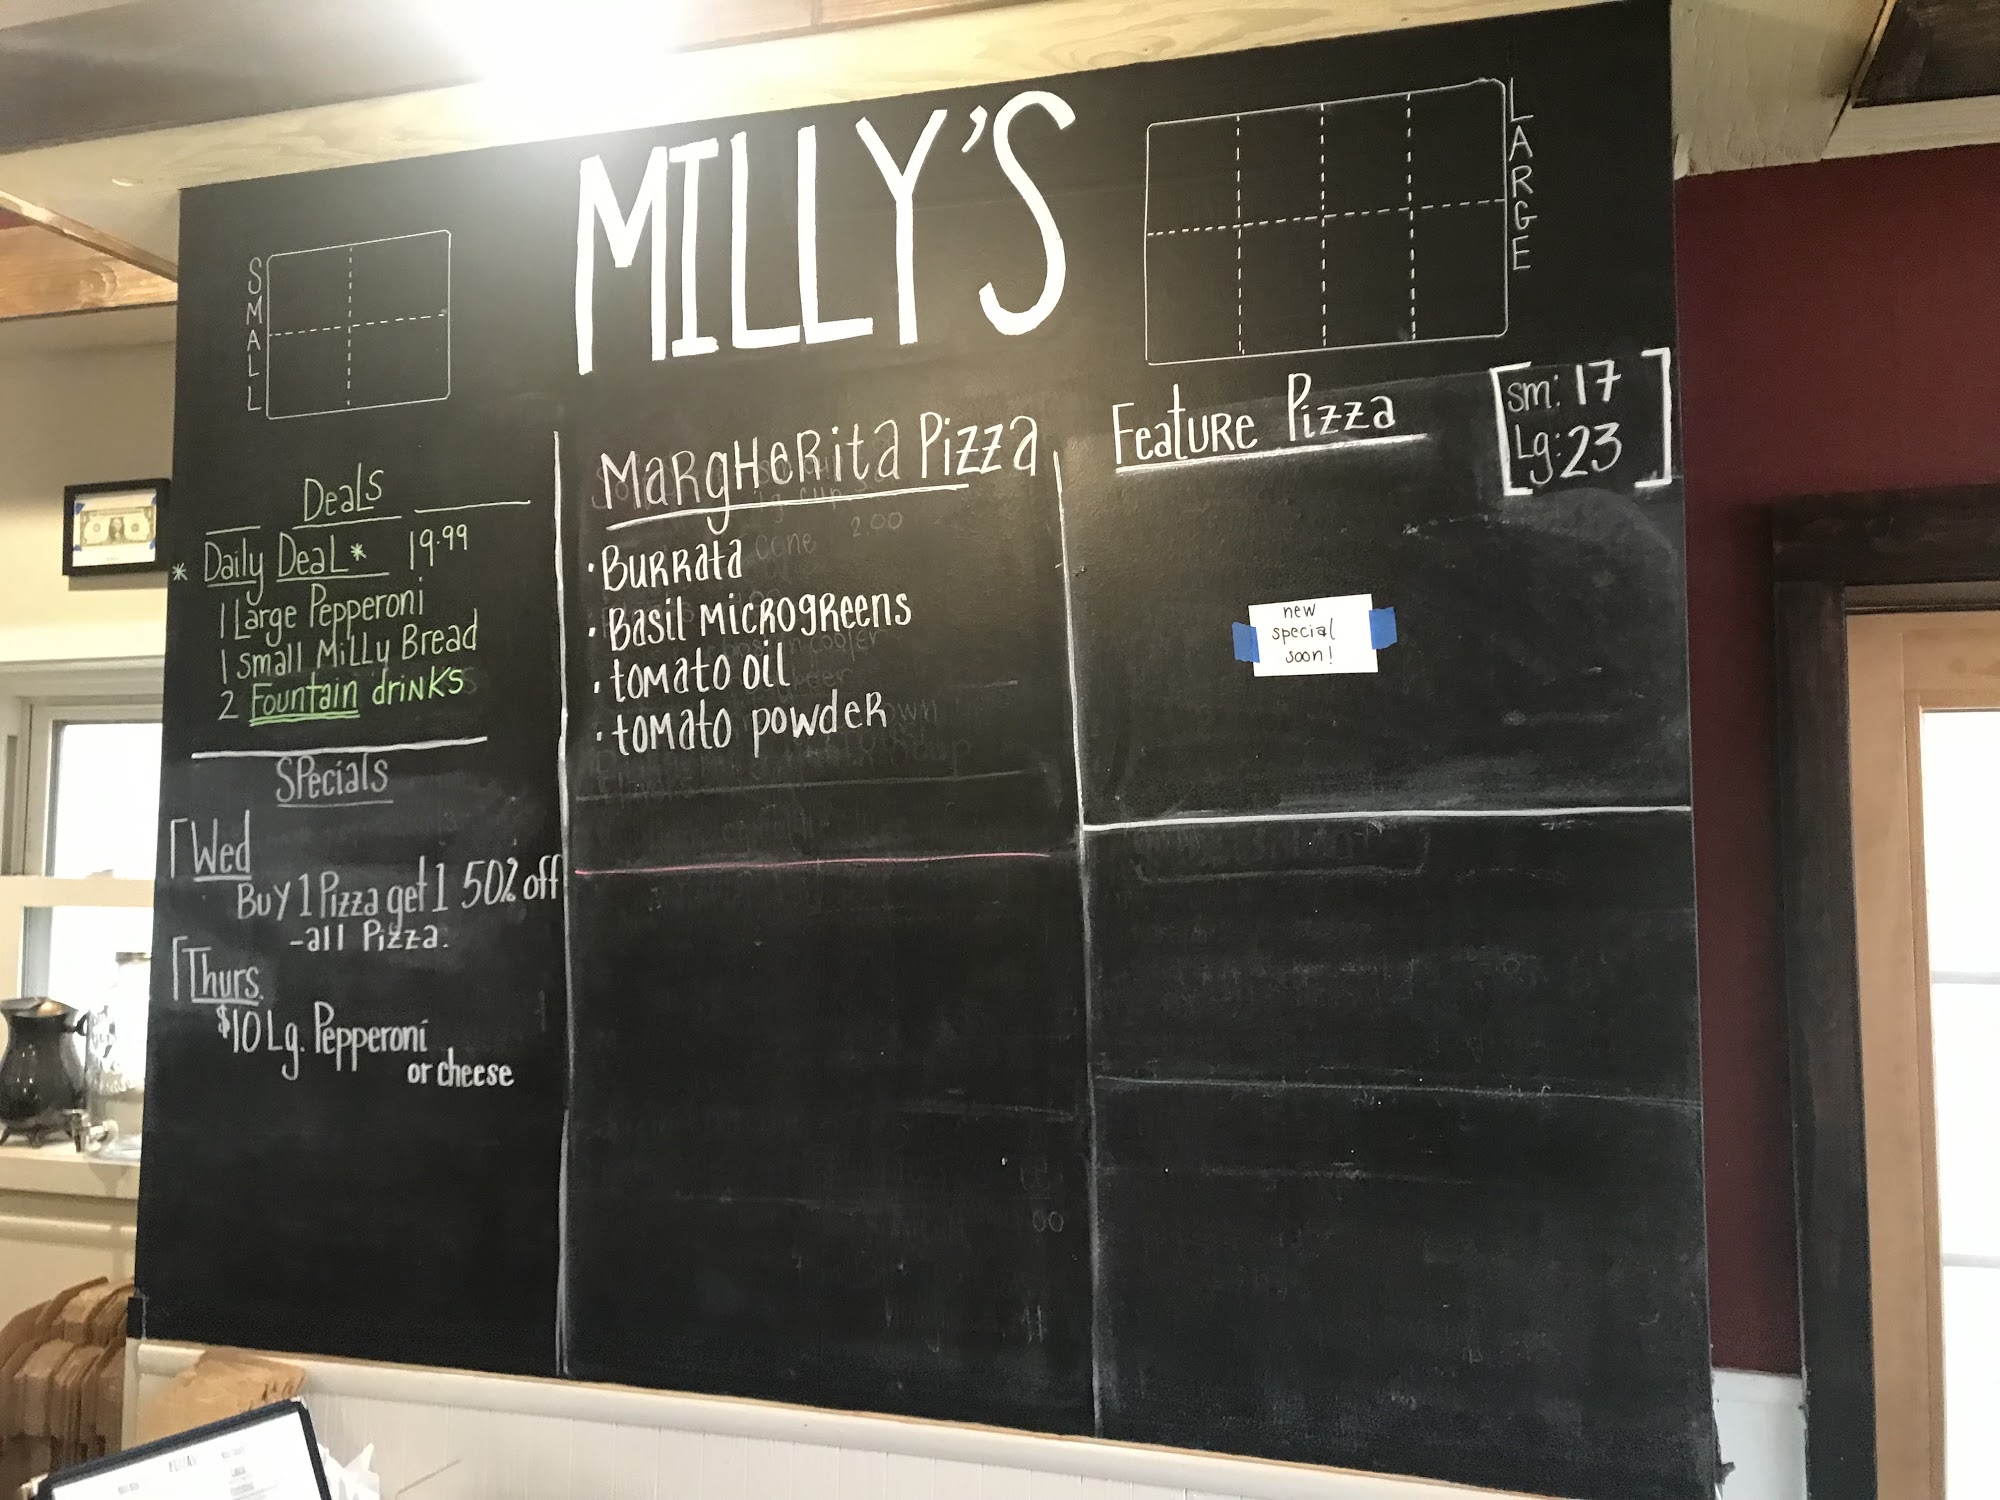 MILLY'S
SMALL
LARGE
Deals
* Daily Deal * 19.99
1 Large Pepperoni
1 small Milly Bread
2 Fountain drinks
Specials
Wed
Buy 1 Pizza get 1 50% off
-all Pizza.
Thurs.
$10 Lg. Pepperoni
or cheese
Margherita Pizza
· Burrata
· Basil Microgreens
· tomato oil
· tomato powder
Feature Pizza
sm: 17
Lg: 23
new
special
soon!